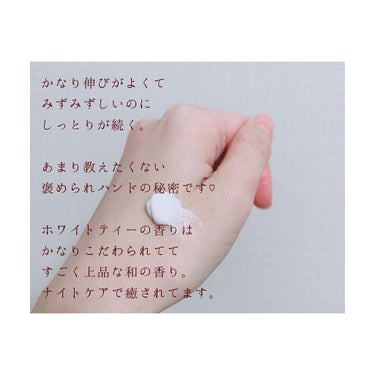 かなり伸びがよくて
みずみずしいのに
しっとりが続く。
あまり教えたくない
褒められハンドの秘密です♡
ホワイトティーの香りは
かなりこだわられてて
すごく上品な和の香り。
ナイトケアで癒されてます。